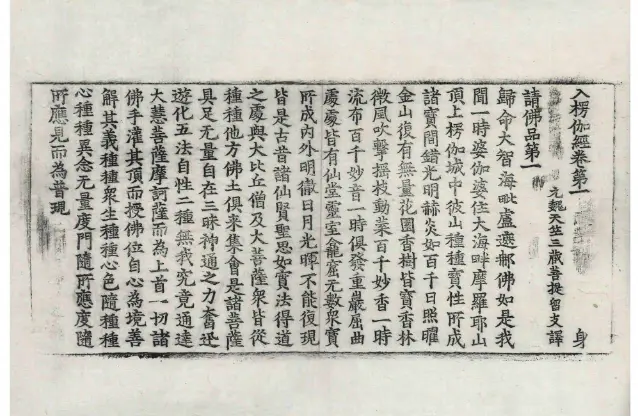 入楞伽經卷第一　身
元魏天竺三藏菩提留支譯
請佛品第一
歸命大智海毗盧遮那佛如是我
聞一時婆伽婆住大海畔摩羅耶山
頂上楞伽城中彼山種種寶性所成
諸寶間錯光明赫炎如百千日照曜
金山復有無量花園香樹皆寶香林
微風吹擊搖枝動葉百千妙香一時
流布百千妙音一時俱發重巖屈曲
處處皆有仙堂靈室龕窟无數衆寶
所成內外明徹日月光暉不能復現
皆是古昔諸仙賢聖思如實法得道
之處與大比丘僧及大菩薩衆皆從
種種他方佛土俱來集會是諸菩薩
具足无量自在三昧神通之力奮迅
遊化五法自性二種無我究竟通達
大慧菩薩摩訶薩而為上首一切諸
佛手灌其頂而授佛位自心為境善
解其義種種衆生種種心色隨種種
心種種異念无量度門隨所應度隨
所應見而為普現